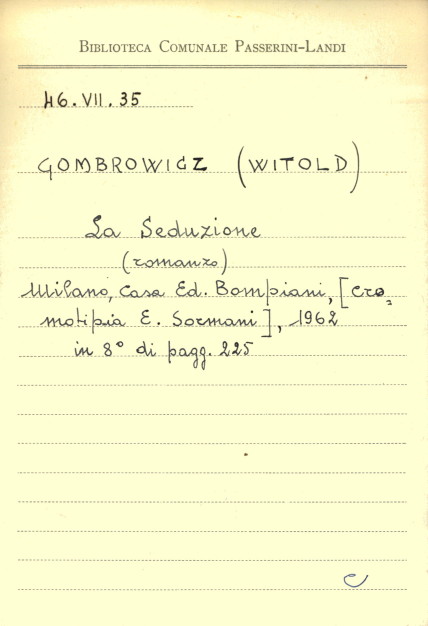 BIBLIOTECA COMUNALE PASSERINI-LANDI
46.VII.35
GOMBROWICZ (WITOLD)
La Seduzione
(romanzo)
Milano, Casa Ed. Bompiani, [Cro=
motipia E. Sormani], 1962
in 8° di pagg. 225
C